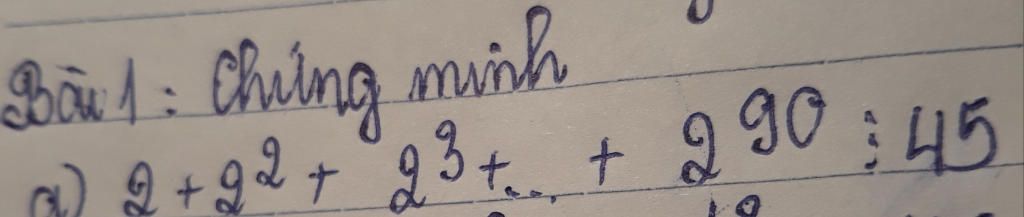 Bài 1: Chứng minh
a) 2 + 2² + 2³ + ... + 2⁹⁰ ⋮ 45